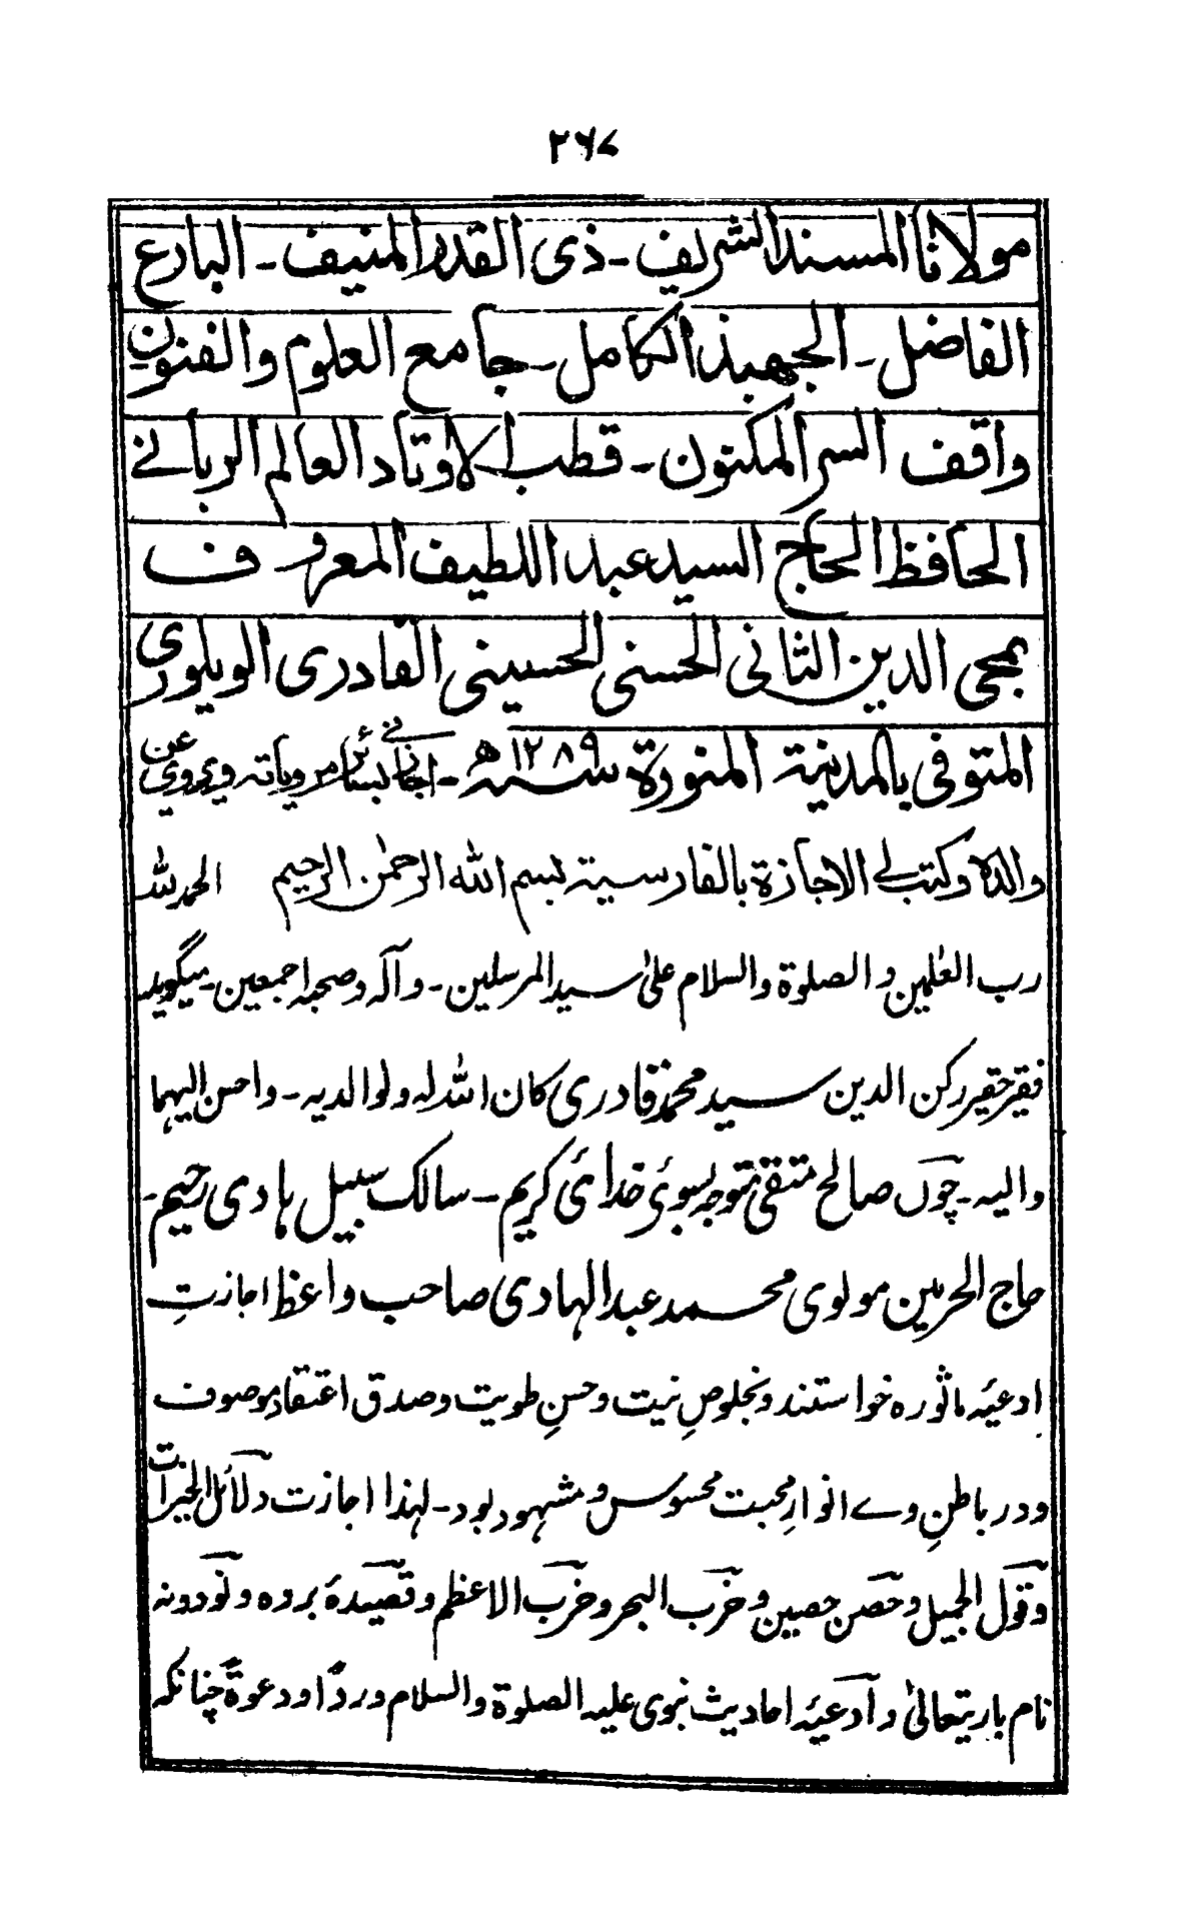 ۲۶۷
مولانا المسند الشريف ـ ذى القدر المنيف ـ البارع
الفاضل ـ الجهبذ الكامل ـ جامع العلوم والفنون
واقف السر المكنون ـ قطب الاوتاد العالم الربانے
الحافظ الحاج السيد عبد اللطيف المعروف
بمحى الدين الثانى الحسنى الحسينى القادرى الويلورى
المتوفى بالمدينة المنورة سنه ۱۲۸۹ھ ـ اجازنے بسائر مروياته ويروي عن
والده وكتب لے الاجازة بالفارسية بسم الله الرحمٰن الرحيم الحمد لله
رب العٰلمين والصلوة والسلام علىٰ سيد المرسلين ـ وآله وصحبه اجمعين ـ میگوید
فقیر حقیر رکن الدین سید محمد قادری کان الله له ولوالدیه ـ واحسن الیهما
والیه ـ چوں صالح متقی متوجه بسوئ خدائ کریم ـ سالک سبیل هادی رحیم ـ
حاج الحرمین مولوی محمد عبد الهادی صاحب واعظ اجازتِ
ادعیۂ ماثوره خواستند وبخلوصِ نیت وحسنِ طویت وصدق اعتقاد موصوف
ودر باطنِ وے انوارِ محبت محسوس ومشهود بود ـ لهذا اجازت دلائل الخیرات
وقول الجمیل وحصن حصین وحزب البحر وحزب الاعظم وقصیدۂ برده ونودونه
نام باریتعالیٰ وادعیۂ احادیث نبوی علیه الصلوة والسلام ورداً ودعوةً چنانکه